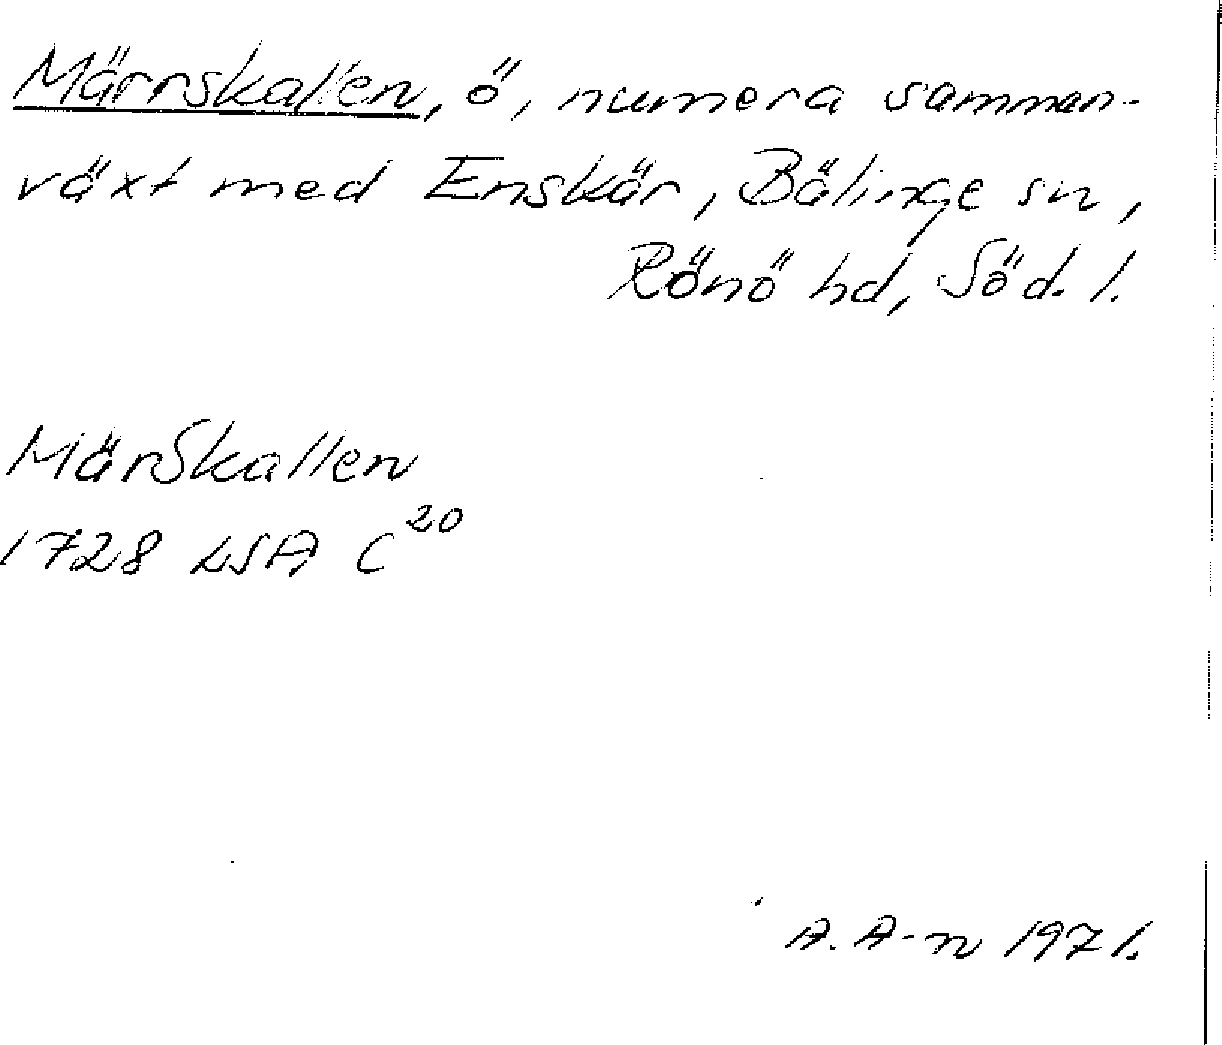 Märrskallen, ö, numera samman-
växt med Enskär, Bälinge sn,
Rönö hd, Söd. l.
MärSkallen
1728 LSA C²⁰
A. A-n 1971.